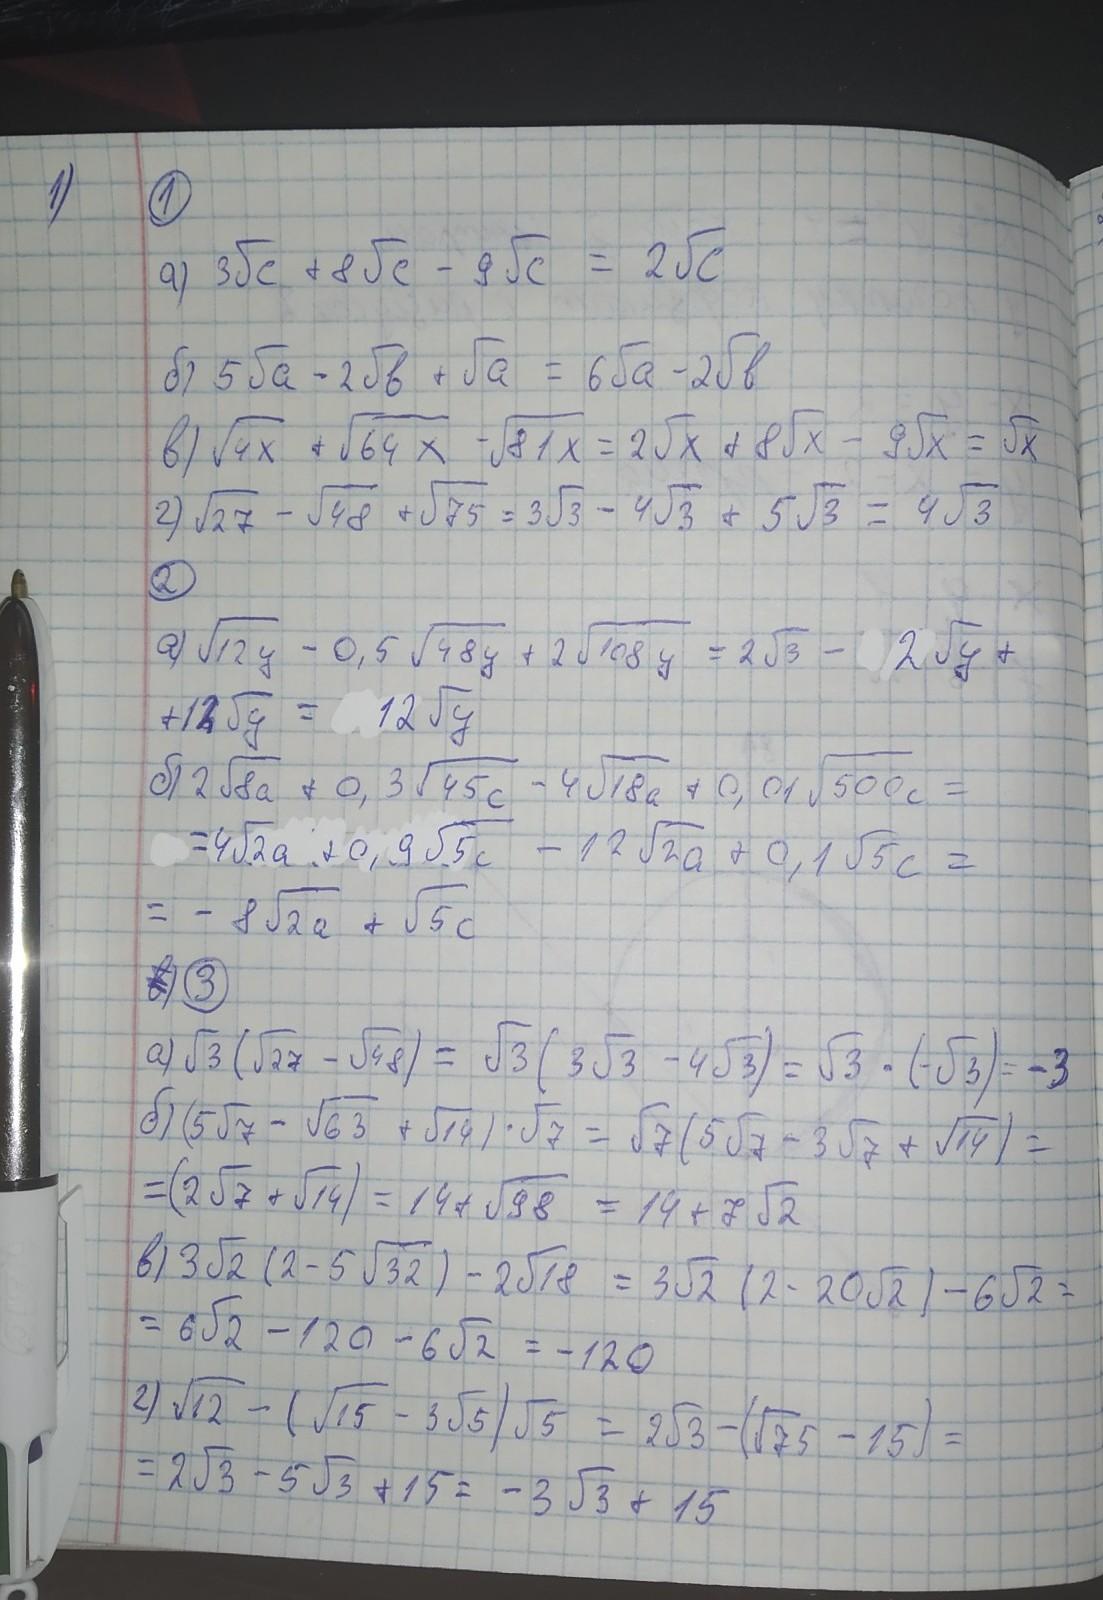 1) ①
а) 3√c + 8√c - 9√c = 2√c
б) 5√a - 2√b + √a = 6√a - 2√b
в) √4x + √64x - √81x = 2√x + 8√x - 9√x = √x
г) √27 - √48 + √75 = 3√3 - 4√3 + 5√3 = 4√3
②
а) √12y - 0,5√48y + 2√108y = 2√3 - 2√y +
+12√y = 12√y
б) 2√8a + 0,3√45c - 4√18a + 0,01√500c =
= 4√2a + 0,9√5c - 12√2a + 0,1√5c =
= - 8√2a + √5c
③
а) √3(√27 - √48) = √3(3√3 - 4√3) = √3 · (-√3) = -3
б) (5√7 - √63 + √14) · √7 = √7(5√7 - 3√7 + √14) =
= (2√7 + √14) = 14 + √98 = 14 + 7√2
в) 3√2(2 - 5√32) - 2√18 = 3√2(2 - 20√2) - 6√2 =
= 6√2 - 120 - 6√2 = -120
г) √12 - (√15 - 3√5)√5 = 2√3 - (√75 - 15) =
= 2√3 - 5√3 + 15 = -3√3 + 15